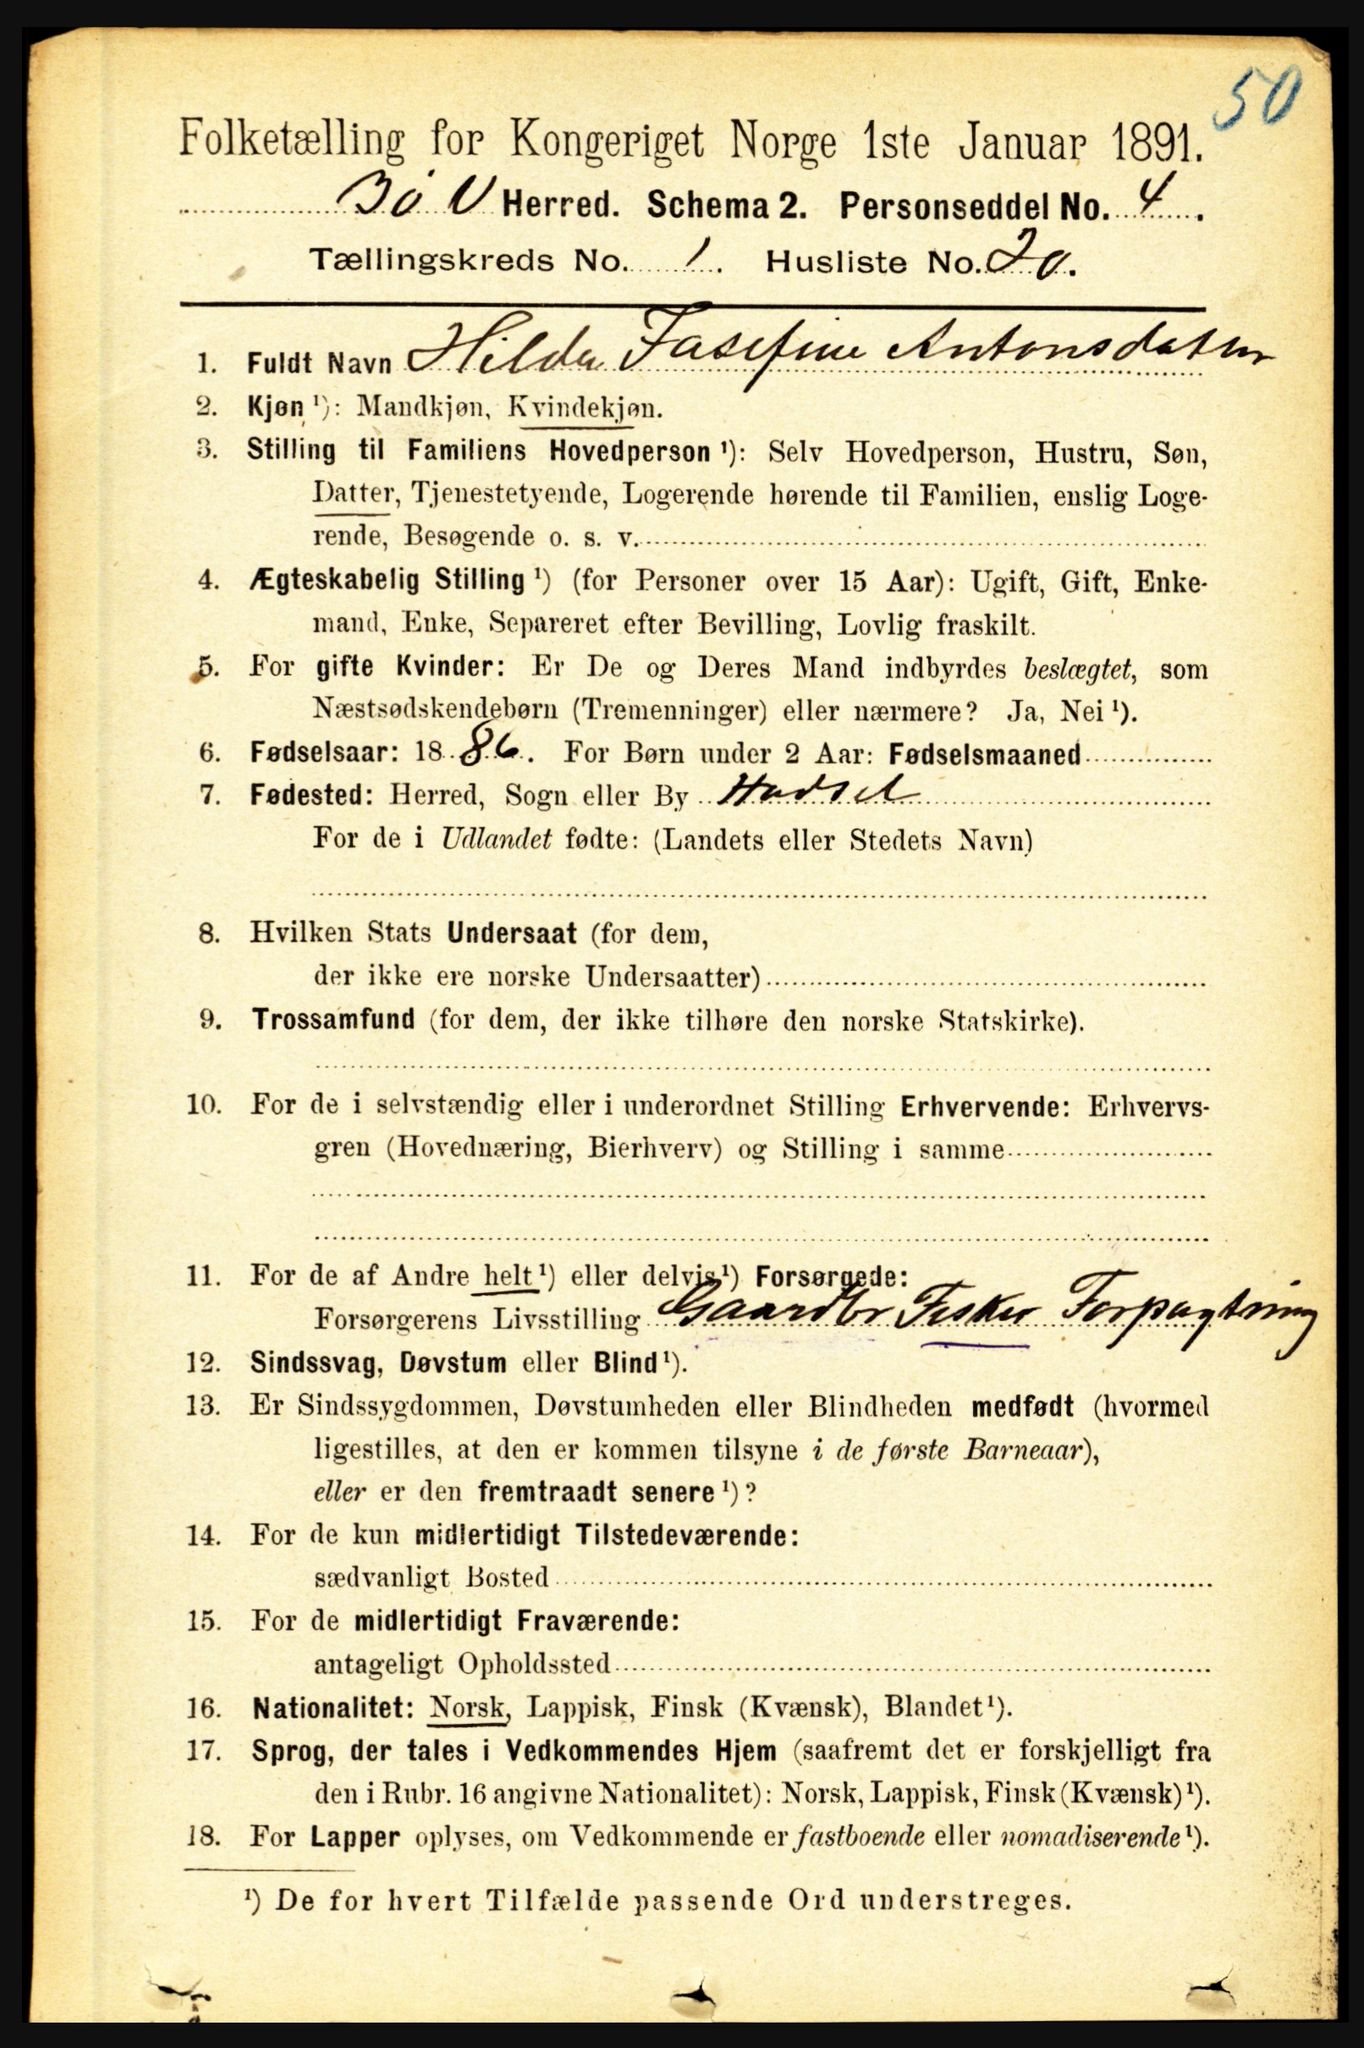 50
Folketælling for Kongeriget Norge 1ste Januar 1891.
Bø V Herred. Schema 2. Personseddel No. 4.
Tællingskreds No. 1. Husliste No. 20.
1. Fuldt Navn Hilda Jasefine Antonsdatter
2. Kjøn ¹): Mandkjøn, Kvindekjøn.
3. Stilling til Familiens Hovedperson ¹): Selv Hovedperson, Hustru, Søn,
Datter, Tjenestetyende, Logerende hørende til Familien, enslig Loge-
rende, Besøgende o. s. v.
4. Ægteskabelig Stilling ¹) (for Personer over 15 Aar): Ugift, Gift, Enke-
mand, Enke, Separeret efter Bevilling, Lovlig fraskilt.
5. For gifte Kvinder: Er De og Deres Mand indbyrdes beslægtet, som
Næstsødskendebørn (Tremenninger) eller nærmere? Ja, Nei ¹).
6. Fødselsaar: 1886. For Børn under 2 Aar: Fødselsmaaned
7. Fødested: Herred, Sogn eller By Hadsel
For de i Udlandet fødte: (Landets eller Stedets Navn)
8. Hvilken Stats Undersaat (for dem,
der ikke ere norske Undersaatter)
9. Trossamfund (for dem, der ikke tilhøre den norske Statskirke).
10. For de i selvstændig eller i underordnet Stilling Erhvervende: Erhvervs-
gren (Hovednæring, Bierhverv) og Stilling i samme
11. For de af Andre helt ¹) eller delvis ¹) Forsørgede:
Forsørgerens Livsstilling Gaardbr Fisker Forpagtning
12. Sindssvag, Døvstum eller Blind ¹).
13. Er Sindssygdommen, Døvstumheden eller Blindheden medfødt (hvormed
ligestilles, at den er kommen tilsyne i de første Barneaar),
eller er den fremtraadt senere ¹)?
14. For de kun midlertidigt Tilstedeværende:
sædvanligt Bosted
15. For de midlertidigt Fraværende:
antageligt Opholdssted
16. Nationalitet: Norsk, Lappisk, Finsk (Kvænsk), Blandet ¹).
17. Sprog, der tales i Vedkommendes Hjem (saafremt det er forskjelligt fra
den i Rubr. 16 angivne Nationalitet): Norsk, Lappisk, Finsk (Kvænsk) ¹).
18. For Lapper oplyses, om Vedkommende er fastboende eller nomadiserende ¹).
¹) De for hvert Tilfælde passende Ord understreges.